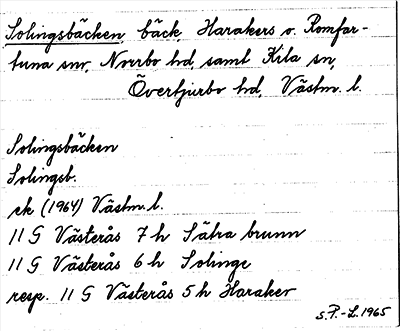 Solingsbäcken, bäck, Harakers o. Romfar-
tuna snr, Norrbo hd, samt Kila sn,
Övertjurbo hd, Västm. l.
Solingsbäcken
Solingsb.
ek (1964) Västm. l.
11 G Västerås 7 h Sätra brunn
11 G Västerås 6 h Solinge
resp. 11 G Västerås 5 h Haraker
S.P.-L. 1965